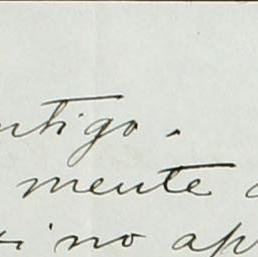 ntigo.
mente
i no ap